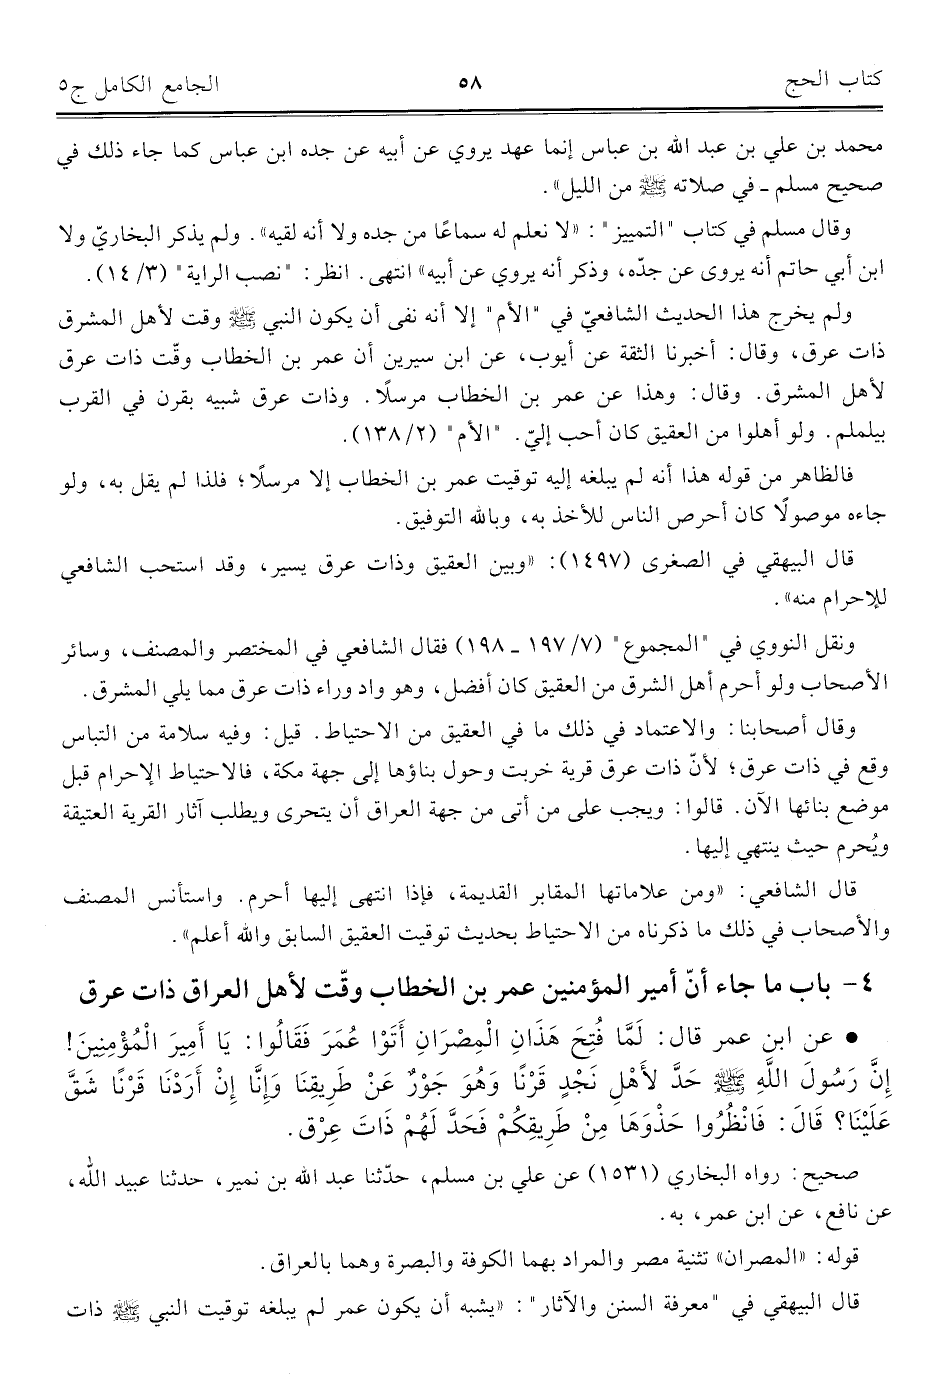 كتاب الحج ٥٨ الجامع الكامل ج٥
محمد بن علي بن عبد الله بن عباس إنما عهد يروي عن أبيه عن جده ابن عباس كما جاء ذلك في
صحيح مسلم - في صلاته ﷺ من الليل».
وقال مسلم في كتاب "التمييز": «لا نعلم له سماعًا من جده ولا أنه لقيه». ولم يذكر البخاريّ ولا
ابن أبي حاتم أنه يروى عن جدّه، وذكر أنه يروي عن أبيه» انتهى. انظر: "نصب الراية" (٣/ ١٤).
ولم يخرج هذا الحديث الشافعيّ في "الأم" إلا أنه نفى أن يكون النبي ﷺ وقت لأهل المشرق
ذات عرق، وقال: أخبرنا الثقة عن أيوب، عن ابن سيرين أن عمر بن الخطاب وقّت ذات عرق
لأهل المشرق. وقال: وهذا عن عمر بن الخطاب مرسلًا. وذات عرق شبيه بقرن في القرب
بيلملم. ولو أهلوا من العقيق كان أحب إليّ. "الأم" (٢/ ١٣٨).
فالظاهر من قوله هذا أنه لم يبلغه إليه توقيت عمر بن الخطاب إلا مرسلًا؛ فلذا لم يقل به، ولو
جاءه موصولًا كان أحرص الناس للأخذ به، وبالله التوفيق.
قال البيهقي في الصغرى (١٤٩٧): «وبين العقيق وذات عرق يسير، وقد استحب الشافعي
للإحرام منه».
ونقل النووي في "المجموع" (٧/ ١٩٧ - ١٩٨) فقال الشافعي في المختصر والمصنف، وسائر
الأصحاب ولو أحرم أهل الشرق من العقيق كان أفضل، وهو واد وراء ذات عرق مما يلي المشرق.
وقال أصحابنا: والاعتماد في ذلك ما في العقيق من الاحتياط. قيل: وفيه سلامة من التباس
وقع في ذات عرق؛ لأنّ ذات عرق قرية خربت وحول بناؤها إلى جهة مكة، فالاحتياط الإحرام قبل
موضع بنائها الآن. قالوا: ويجب على من أتى من جهة العراق أن يتحرى ويطلب آثار القرية العتيقة
ويُحرم حيث ينتهي إليها.
قال الشافعي: «ومن علاماتها المقابر القديمة، فإذا انتهى إليها أحرم. واستأنس المصنف
والأصحاب في ذلك ما ذكرناه من الاحتياط بحديث توقيت العقيق السابق والله أعلم».
٤- باب ما جاء أنّ أمير المؤمنين عمر بن الخطاب وقّت لأهل العراق ذات عرق
• عن ابن عمر قال: لَمَّا فُتِحَ هَذَانِ الْمِصْرَانِ أَتَوْا عُمَرَ فَقَالُوا: يَا أَمِيرَ الْمُؤْمِنِينَ!
إِنَّ رَسُولَ اللَّهِ ﷺ حَدَّ لأَهْلِ نَجْدٍ قَرْنًا وَهُوَ جَوْرٌ عَنْ طَرِيقِنَا وَإِنَّا إِنْ أَرَدْنَا قَرْنًا شَقَّ
عَلَيْنَا؟ قَالَ: فَانْظُرُوا حَذْوَهَا مِنْ طَرِيقِكُمْ فَحَدَّ لَهُمْ ذَاتَ عِرْقٍ.
صحيح: رواه البخاري (١٥٣١) عن علي بن مسلم، حدّثنا عبد الله بن نمير، حدثنا عبيد الله،
عن نافع، عن ابن عمر، به.
قوله: «المصران» تثنية مصر والمراد بهما الكوفة والبصرة وهما بالعراق.
قال البيهقي في "معرفة السنن والآثار": «يشبه أن يكون عمر لم يبلغه توقيت النبي ﷺ ذات